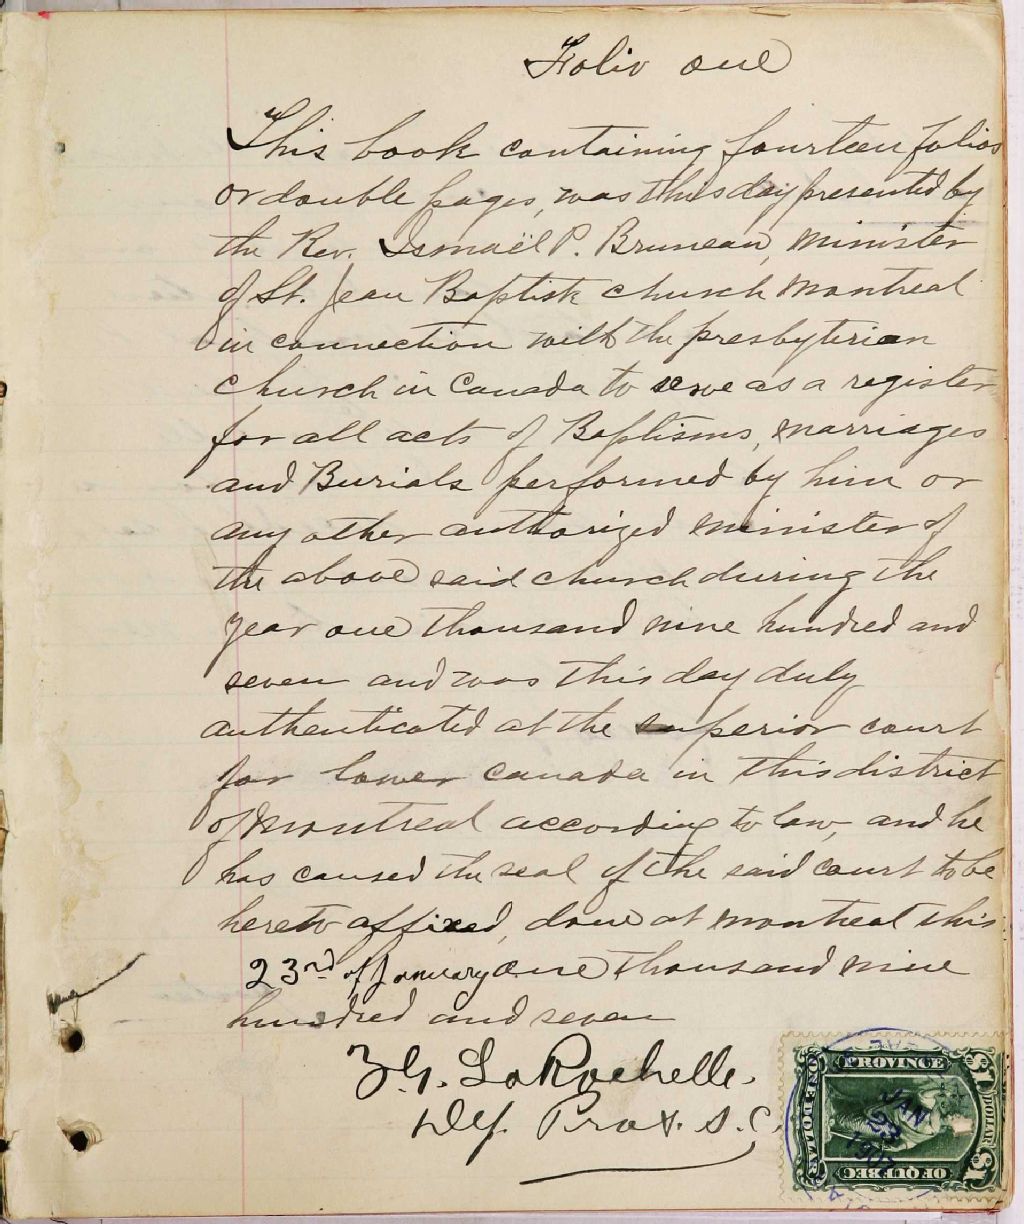 Folio one
This book containing fourteen folios
or double pages, was this day presented by
the Rev. Ismaël P. Bruneau, minister
of St. Jean Baptiste church Montreal
in connection with the presbyterian
church in Canada to serve as a register
for all acts of Baptisms, marriages
and Burials performed by him or
any other authorized minister of
the above said church during the
year one thousand nine hundred and
seven and was this day duly
authenticated at the superior court
for lower Canada in this district
of Montreal according to law, and he
has caused the seal of the said court to be
hereto affixed, done at Montreal this
23rd of January one thousand nine
hundred and seven
LaRochelle.
Dy. Prot. S.C.
PROVINCE
OF QUEBEC
ONE DOLLAR
$1 DOLLAR $1
JAN
23
1907